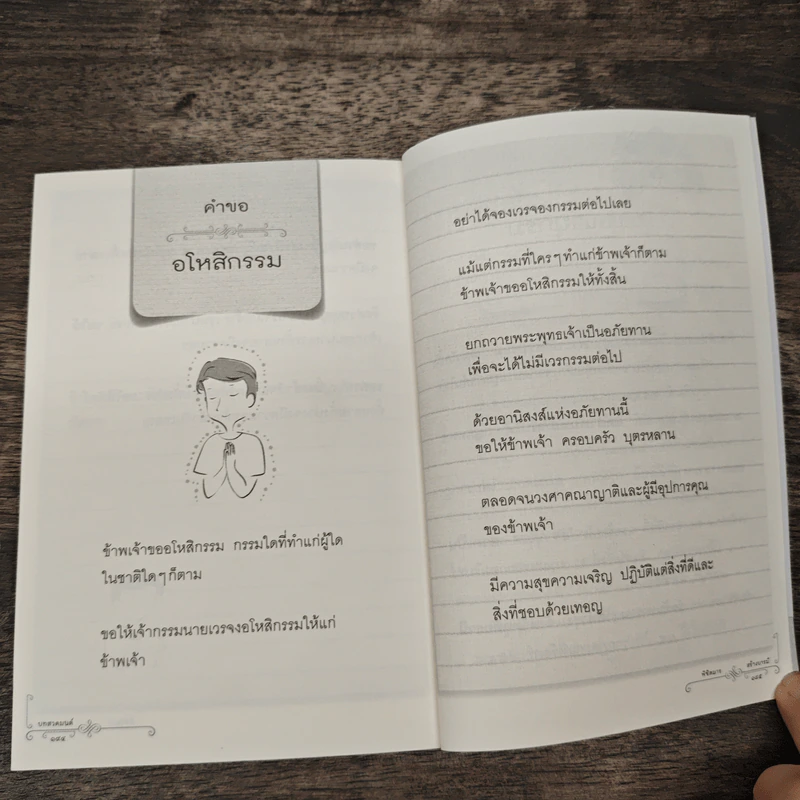 คำขอ
อโหสิกรรม
ข้าพเจ้าขออโหสิกรรม กรรมใดที่ทำแก่ผู้ใด
ในชาติใดๆ ก็ตาม
ขอให้เจ้ากรรมนายเวรจงอโหสิกรรมให้แก่
ข้าพเจ้า
บทสวดมนต์
อย่าได้จองเวรจองกรรมต่อไปเลย
แม้แต่กรรมที่ใครๆ ทำแก่ข้าพเจ้าก็ตาม
ข้าพเจ้าขออโหสิกรรมให้ทั้งสิ้น
ยกถวายพระพุทธเจ้าเป็นอภัยทาน
เพื่อจะได้ไม่มีเวรกรรมต่อไป
ด้วยอานิสงส์แห่งอภัยทานนี้
ขอให้ข้าพเจ้า ครอบครัว บุตรหลาน
ตลอดจนวงศาคณาญาติและผู้มีอุปการคุณ
ของข้าพเจ้า
มีความสุขความเจริญ ปฏิบัติแต่สิ่งที่ดีและ
สิ่งที่ชอบด้วยเทอญ
พิชิตมาร สร้างบารมี